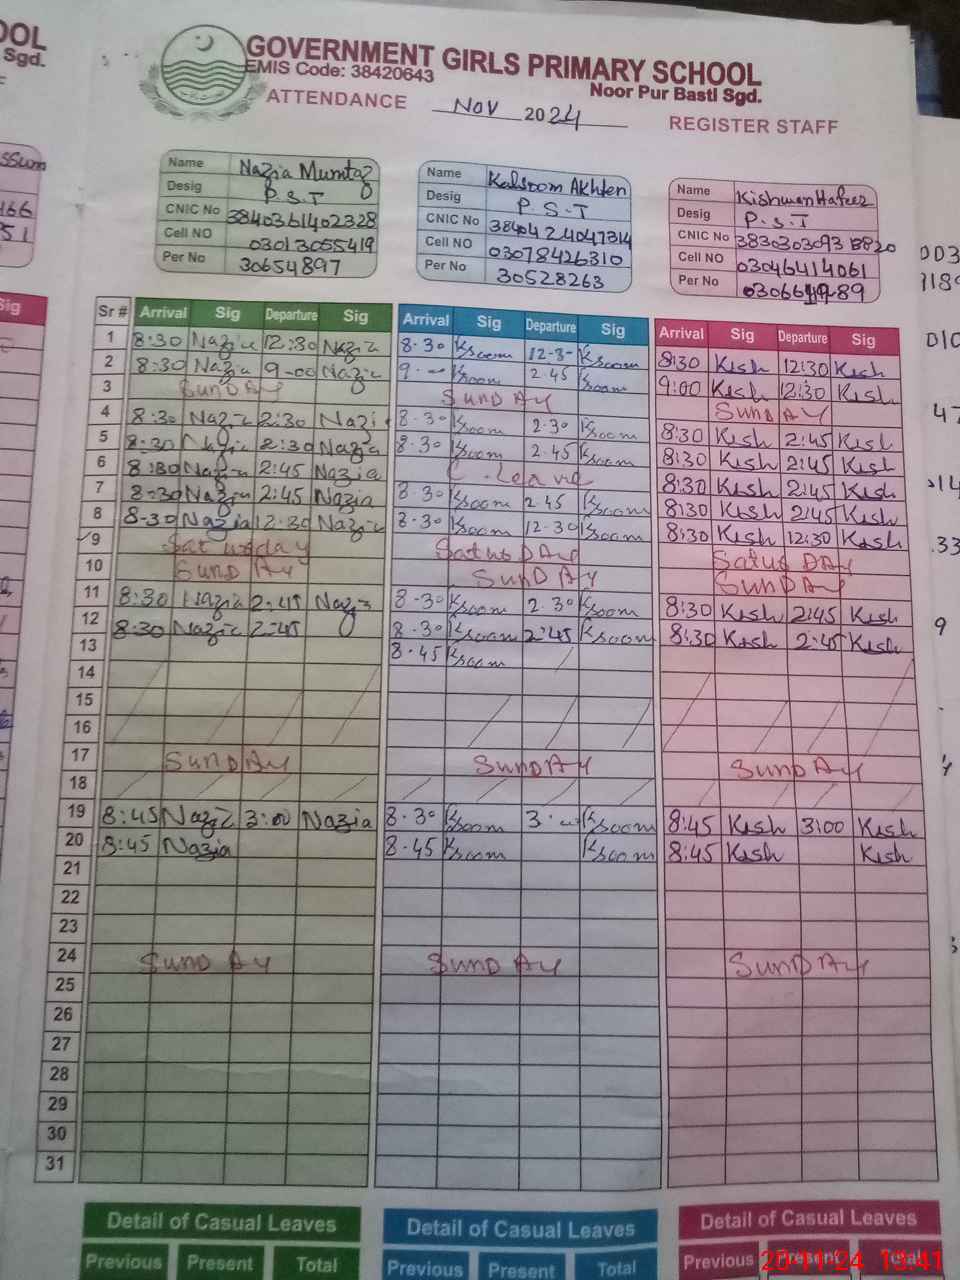 OOL
Sgd.
GOVERNMENT GIRLS PRIMARY SCHOOL
EMIS Code: 38420643
Noor Pur Basti Sgd.
ATTENDANCE Nov 2024 REGISTER STAFF
Name Nazia Mumtaz
Desig P.S.T
CNIC No 3840361402328
Cell NO 03013055419
Per No 30654897
Name Kalsoom Akhter
Desig P.S.T
CNIC No
Cell NO 03078426310
Per No 30528263
Name
Desig P.S.T
CNIC No
Cell NO 03046414061
Per No
Sr # Arrival Sig Departure Sig Arrival Sig Departure Sig Arrival Sig Departure Sig
1 8:30 Nazia 12:30 Nazia 8-30 Ksoom Ksoom 8:30 Kish 12:30 Kish
2 8:30 Nazia 9-00 Nazia Ksoom 2.45 Ksoom 9:00 Kish 12:30 Kish
3 SunDAY SunDAY SunDAY
4 8:30 Nazia 2:30 Nazia 8-30 Ksoom 2.30 Ksoom 8:30 Kish 2:45 Kish
5 8:30 Nazia 2:30 Nazia 8-30 Ksoom 2.45 Ksoom 8:30 Kish 2:45 Kish
6 8:30 Nazia 2:45 Nazia C.Leave 8:30 Kish 2:45 Kish
7 8-30 Nazia 2:45 Nazia 8-30 Ksoom 2.45 Ksoom 8:30 Kish 2:45 Kish
8 8-30 Nazia 12:30 Nazia 8-30 Ksoom 12-30 Ksoom 8:30 Kish 12:30 Kish
9 Saturday
10 SunDAY SunDAY SunDAY
11 8:30 Nazia 2:45 Nazia 8-30 Ksoom 2.30 Ksoom 8:30 Kish 2:45 Kish
12 8:30 Nazia 2:45 8-30 Ksoom 2:45 Ksoom 8:30 Kish 2:45 Kish
13 8.45 Ksoom
14
15
16
17 SunDAY SunDAY SunDAY
18
19 8:45 Nazia 3:00 Nazia 8-30 Ksoom Ksoom 8:45 Kish 3:00 Kish
20 8:45 Nazia 8.45 Ksoom Ksoom 8:45 Kish Kish
21
22
23
24 SunDAY SunDAY SunDAY
25
26
27
28
29
30
31
Detail of Casual Leaves Detail of Casual Leaves Detail of Casual Leaves
Previous Present Total Previous Present Total Previous Present Total
20-11-24 13:41